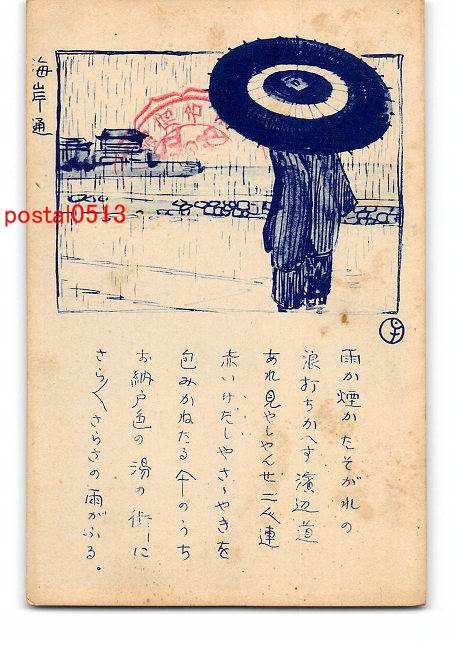 海岸通
雨か煙かたそがれの
浪打ちかへす濱辺道
あれ見やしやんせ二人連
赤いけだしやさゝやきを
包みかねたる傘のうち
お納戸色の湯の街に
さら〱さらさの雨がふる。
postal0513